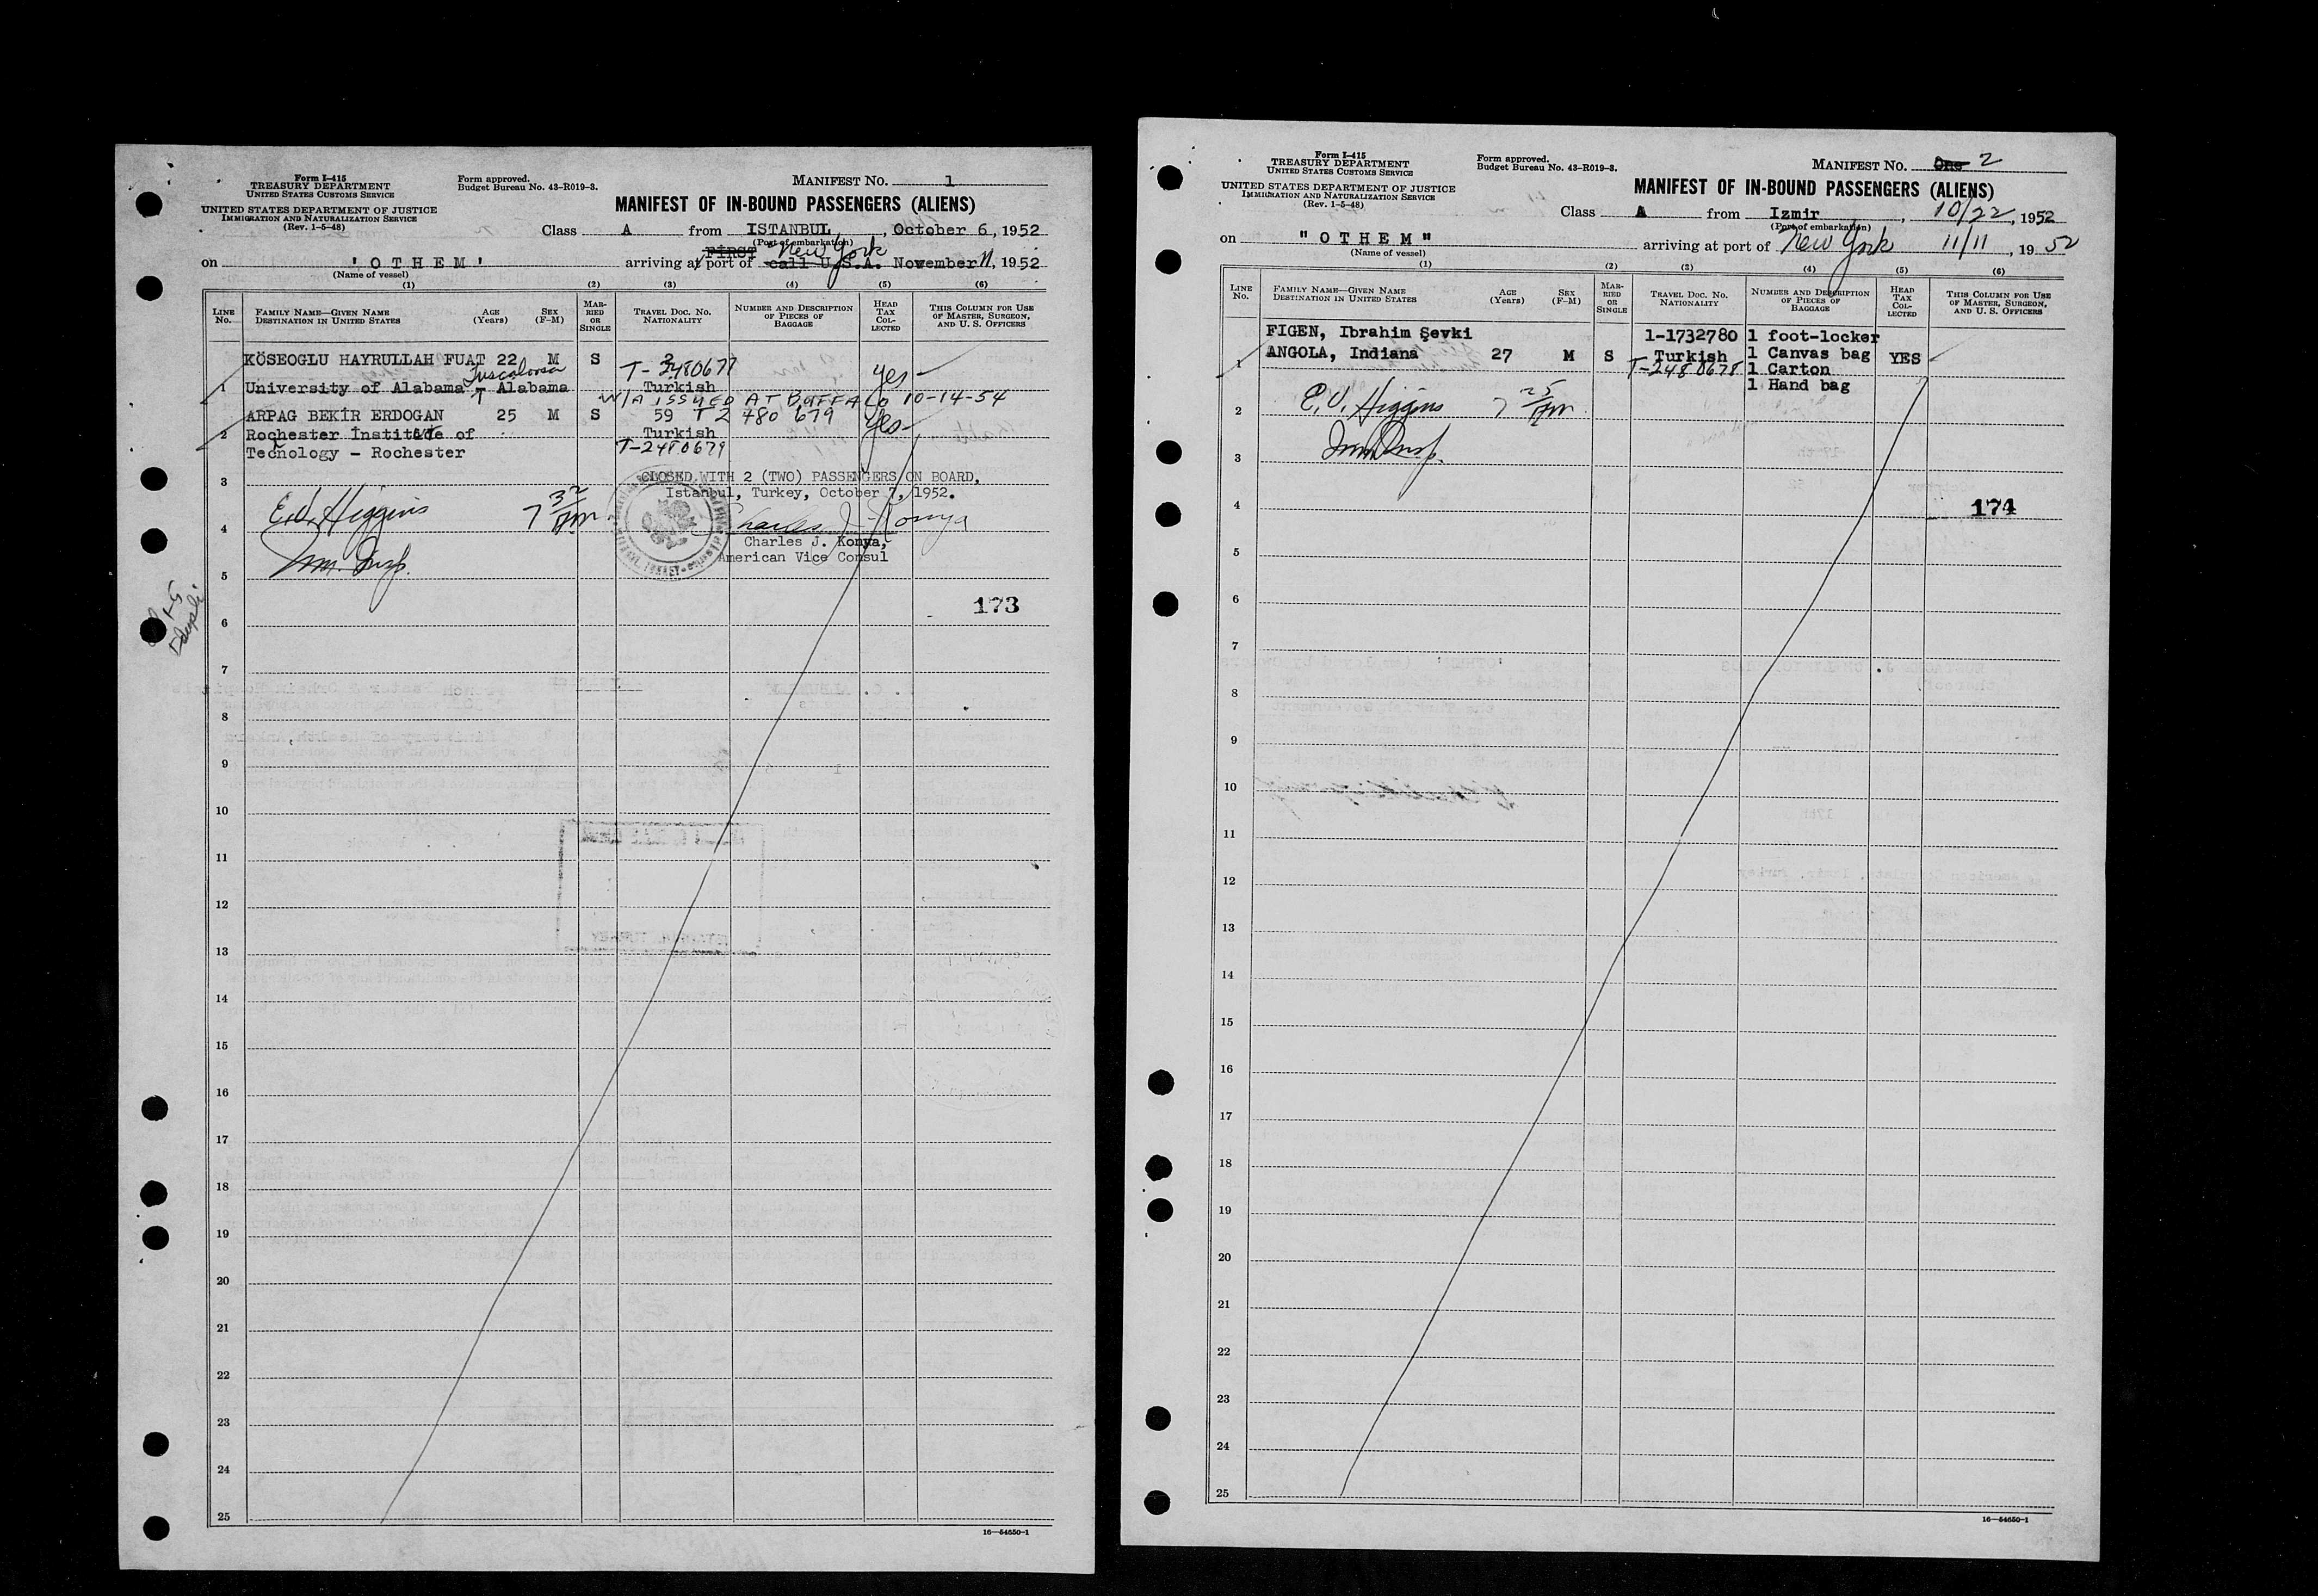 Form I-415
TREASURY DEPARTMENT
UNITED STATES CUSTOMS SERVICE
UNITED STATES DEPARTMENT OF JUSTICE
IMMIGRATION AND NATURALIZATION SERVICE
(Rev. 1-5-48)
Form approved.
Budget Bureau No. 43-R019-3.
MANIFEST NO. 1
MANIFEST OF IN-BOUND PASSENGERS (ALIENS)
Class A from ISTANBUL, October 6, 1952
(Port of embarkation)
First New York
on 'OTHEM' arriving at port of call U.S.A. November 11, 1952
(Name of vessel)
(1) (2) (3) (4) (5) (6)
LINE No. FAMILY NAME—GIVEN NAME DESTINATION IN UNITED STATES AGE (Years) SEX (F-M) MARRIED OR SINGLE TRAVEL DOC. NO. NATIONALITY NUMBER AND DESCRIPTION OF PIECES OF BAGGAGE HEAD TAX COLLECTED THIS COLUMN FOR USE OF MASTER, SURGEON, AND U. S. OFFICERS
KÖSEOGLU HAYRULLAH FUAT 22 M S T-2480677 yes
Tuscaloosa
1 University of Alabama - Alabama Turkish
W/A ISSUED AT BUFFALO 10-14-54
ARPAG BEKİR ERDOGAN 25 M S 59 T2 480 679 yes
2 Rochester İnstitute of Turkish
Tecnology - Rochester T-2480679
3 CLOSED WITH 2 (TWO) PASSENGERS ON BOARD,
Istanbul, Turkey, October 7, 1952.
E.V. Higgins 7 32 PM Charles J. Konya
4 Charles J. Konya,
Imm. Insp. American Vice Consul
5
173
6
7
8
9
10
11
12
13
14
15
16
17
18
19
20
21
22
23
24
25
16—54650-1
Form I-415
TREASURY DEPARTMENT
UNITED STATES CUSTOMS SERVICE
UNITED STATES DEPARTMENT OF JUSTICE
IMMIGRATION AND NATURALIZATION SERVICE
(Rev. 1-5-48)
Form approved.
Budget Bureau No. 43-R019-3.
MANIFEST NO. One 2
MANIFEST OF IN-BOUND PASSENGERS (ALIENS)
Class A from Izmir, 10/22, 1952
(Port of embarkation)
on "OTHEM" arriving at port of New York 11/11 1952
(Name of vessel)
(1) (2) (3) (4) (5) (6)
LINE No. FAMILY NAME—GIVEN NAME DESTINATION IN UNITED STATES AGE (Years) SEX (F-M) MARRIED OR SINGLE TRAVEL DOC. NO. NATIONALITY NUMBER AND DESCRIPTION OF PIECES OF BAGGAGE HEAD TAX COLLECTED THIS COLUMN FOR USE OF MASTER, SURGEON, AND U. S. OFFICERS
FIGEN, Ibrahim Şevki 1-1732780 1 foot-locker
1 ANGOLA, Indiana 27 M S Turkish 1 Canvas bag YES
T-2480678 1 Carton
1 Hand bag
2 E.V. Higgins 7 25 PM
Imm. Insp.
3
4 174
5
6
7
8
9
10
11
12
13
14
15
16
17
18
19
20
21
22
23
24
25
16—54650-1